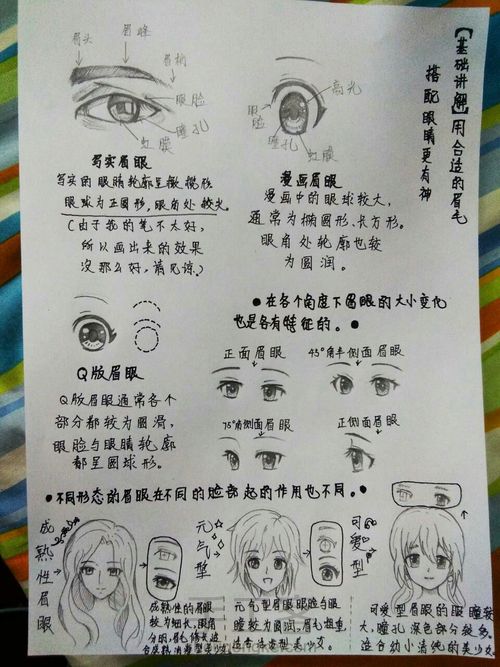 【基础讲解】用合适的眉毛
搭配眼睛更有神
眉头
眉峰
眉梢
眼睑
瞳孔
虹膜
写实眉眼
写实的眼睛轮廓呈微棱形
眼球为正圆形,眼角处较尖
(由于我的笔不太好,
所以画出来的效果
没那么好,请见谅.)
高光
眼睑
瞳孔
虹膜
漫画眉眼
漫画中的眼球较大,
通常为椭圆形、长方形。
眼角处轮廓也较
为圆润。
Q版眉眼
Q版眉眼通常各个
部分都较为圆滑,
眼睑与眼睛轮廓
都呈圆球形。
●在各个角度下眉眼的大小变化
也是各有特征的。●
正面眉眼
45°角半侧面眉眼
75°角侧面眉眼
正侧面眉眼
●不同形态的眉眼在不同的脸部起的作用也不同。●
成熟性眉眼
成熟性的眉眼
较为细长,眼角
分明,眉毛修长适
元气型
元气型眉眼眼睑与眼
瞳较为圆润,眉毛粗重,
可爱型
可爱型眉眼的眼瞳较
大,瞳孔深色部分较多,
适合幼小清纯的美少女